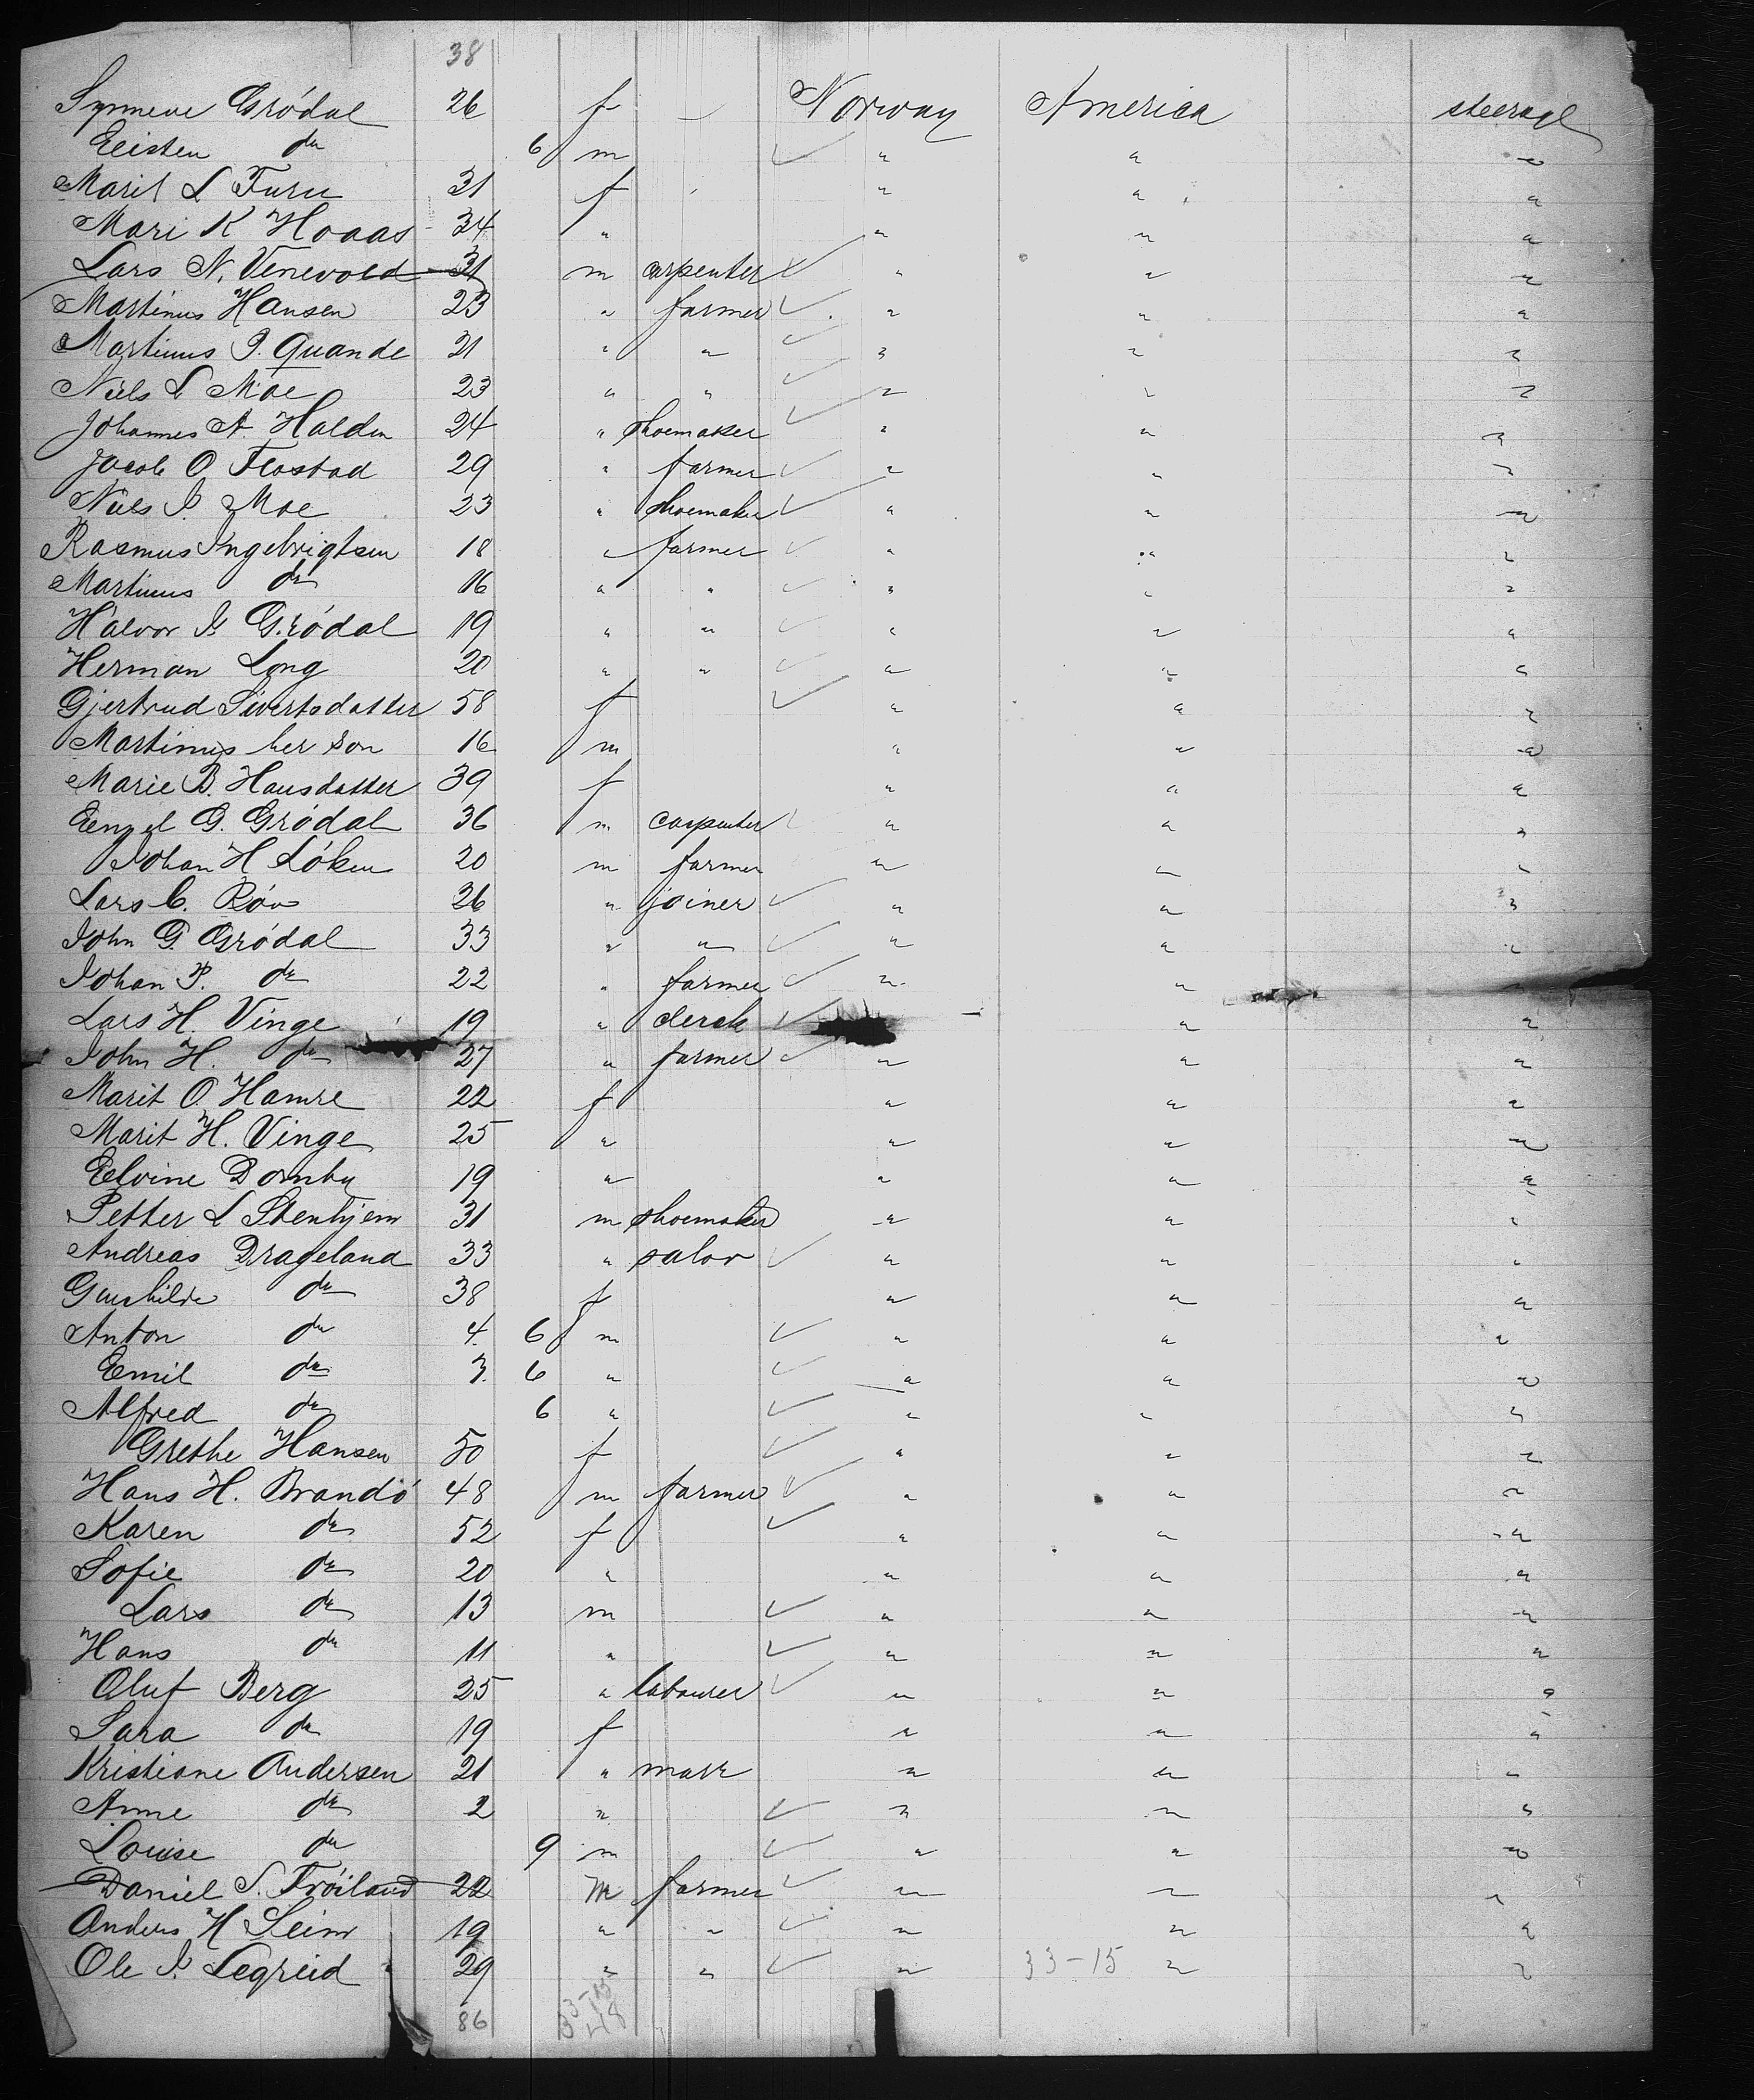 38
Synneve Gródal 26 f Norway America steerage
Eeisten do 6 m " " "
Marit L Furu 31 f " " "
Mari K Hoaas 34 " " " "
Lars N. Venevold 31 m carpenter " " "
Martinus Hansen 23 " farmer " " "
Martinus J. Quande 21 " " " " "
Niels L Moe 23 " " " " "
Johannes A. Halden 24 " shoemaker " " "
Jacob O Flostad 29 " farmer " " "
Niels J. Moe 23 " shoemaker " " "
Rasmus Ingebrigtsen 18 " farmer " " "
Martinus do 16 " " " " "
Halvor J. Gródal 19 " " " " "
Herman Long 20 " " " " "
Gjertrud Sivertsdatter 58 f " " "
Martinus her son 16 m " " "
Marie B. Hansdatter 39 f " " "
Eengel G. Gródal 36 m carpenter " " "
Johan H Lóken 20 m farmer " " "
Lars C. Róv 26 " joiner " " "
John G. Gródal 33 " " " " "
Johan P. do 22 " farmer " " "
Lars H. Vinge 19 " clerck " "
John H. do 27 " farmer " " "
Marit O. Hamre 22 f " " "
Marit H. Vinge 25 " " " "
Eelvine Domby 19 " " " "
Petter L Stenhjem 31 m shoemaker " " "
Andreas Drageland 33 " salor " " "
Gunhilde do 38 f " " "
Anton do 4. 6 m " " "
Eemil do 3. 6 " " " "
Alfred do 6 " " " "
Grethe Hansen 50 f " " "
Hans H. Brandó 48 m farmer " " "
Karen do 52 f " " "
Sofie do 20 " " " "
Lars do 13 m " " "
Hans do 11 " " " "
Oluf Berg 25 " labourer " " "
Sara do 19 f " " "
Kristiane Andersen 21 " " " "
Anne do 2 " " " "
Louise do 9 m " " "
Daniel S. Fróiland 22 m farmer " " "
Anders H Seim 19 " " " " "
Ole J. Legreid 29 " " " 33-15 " "
86 33-15
48